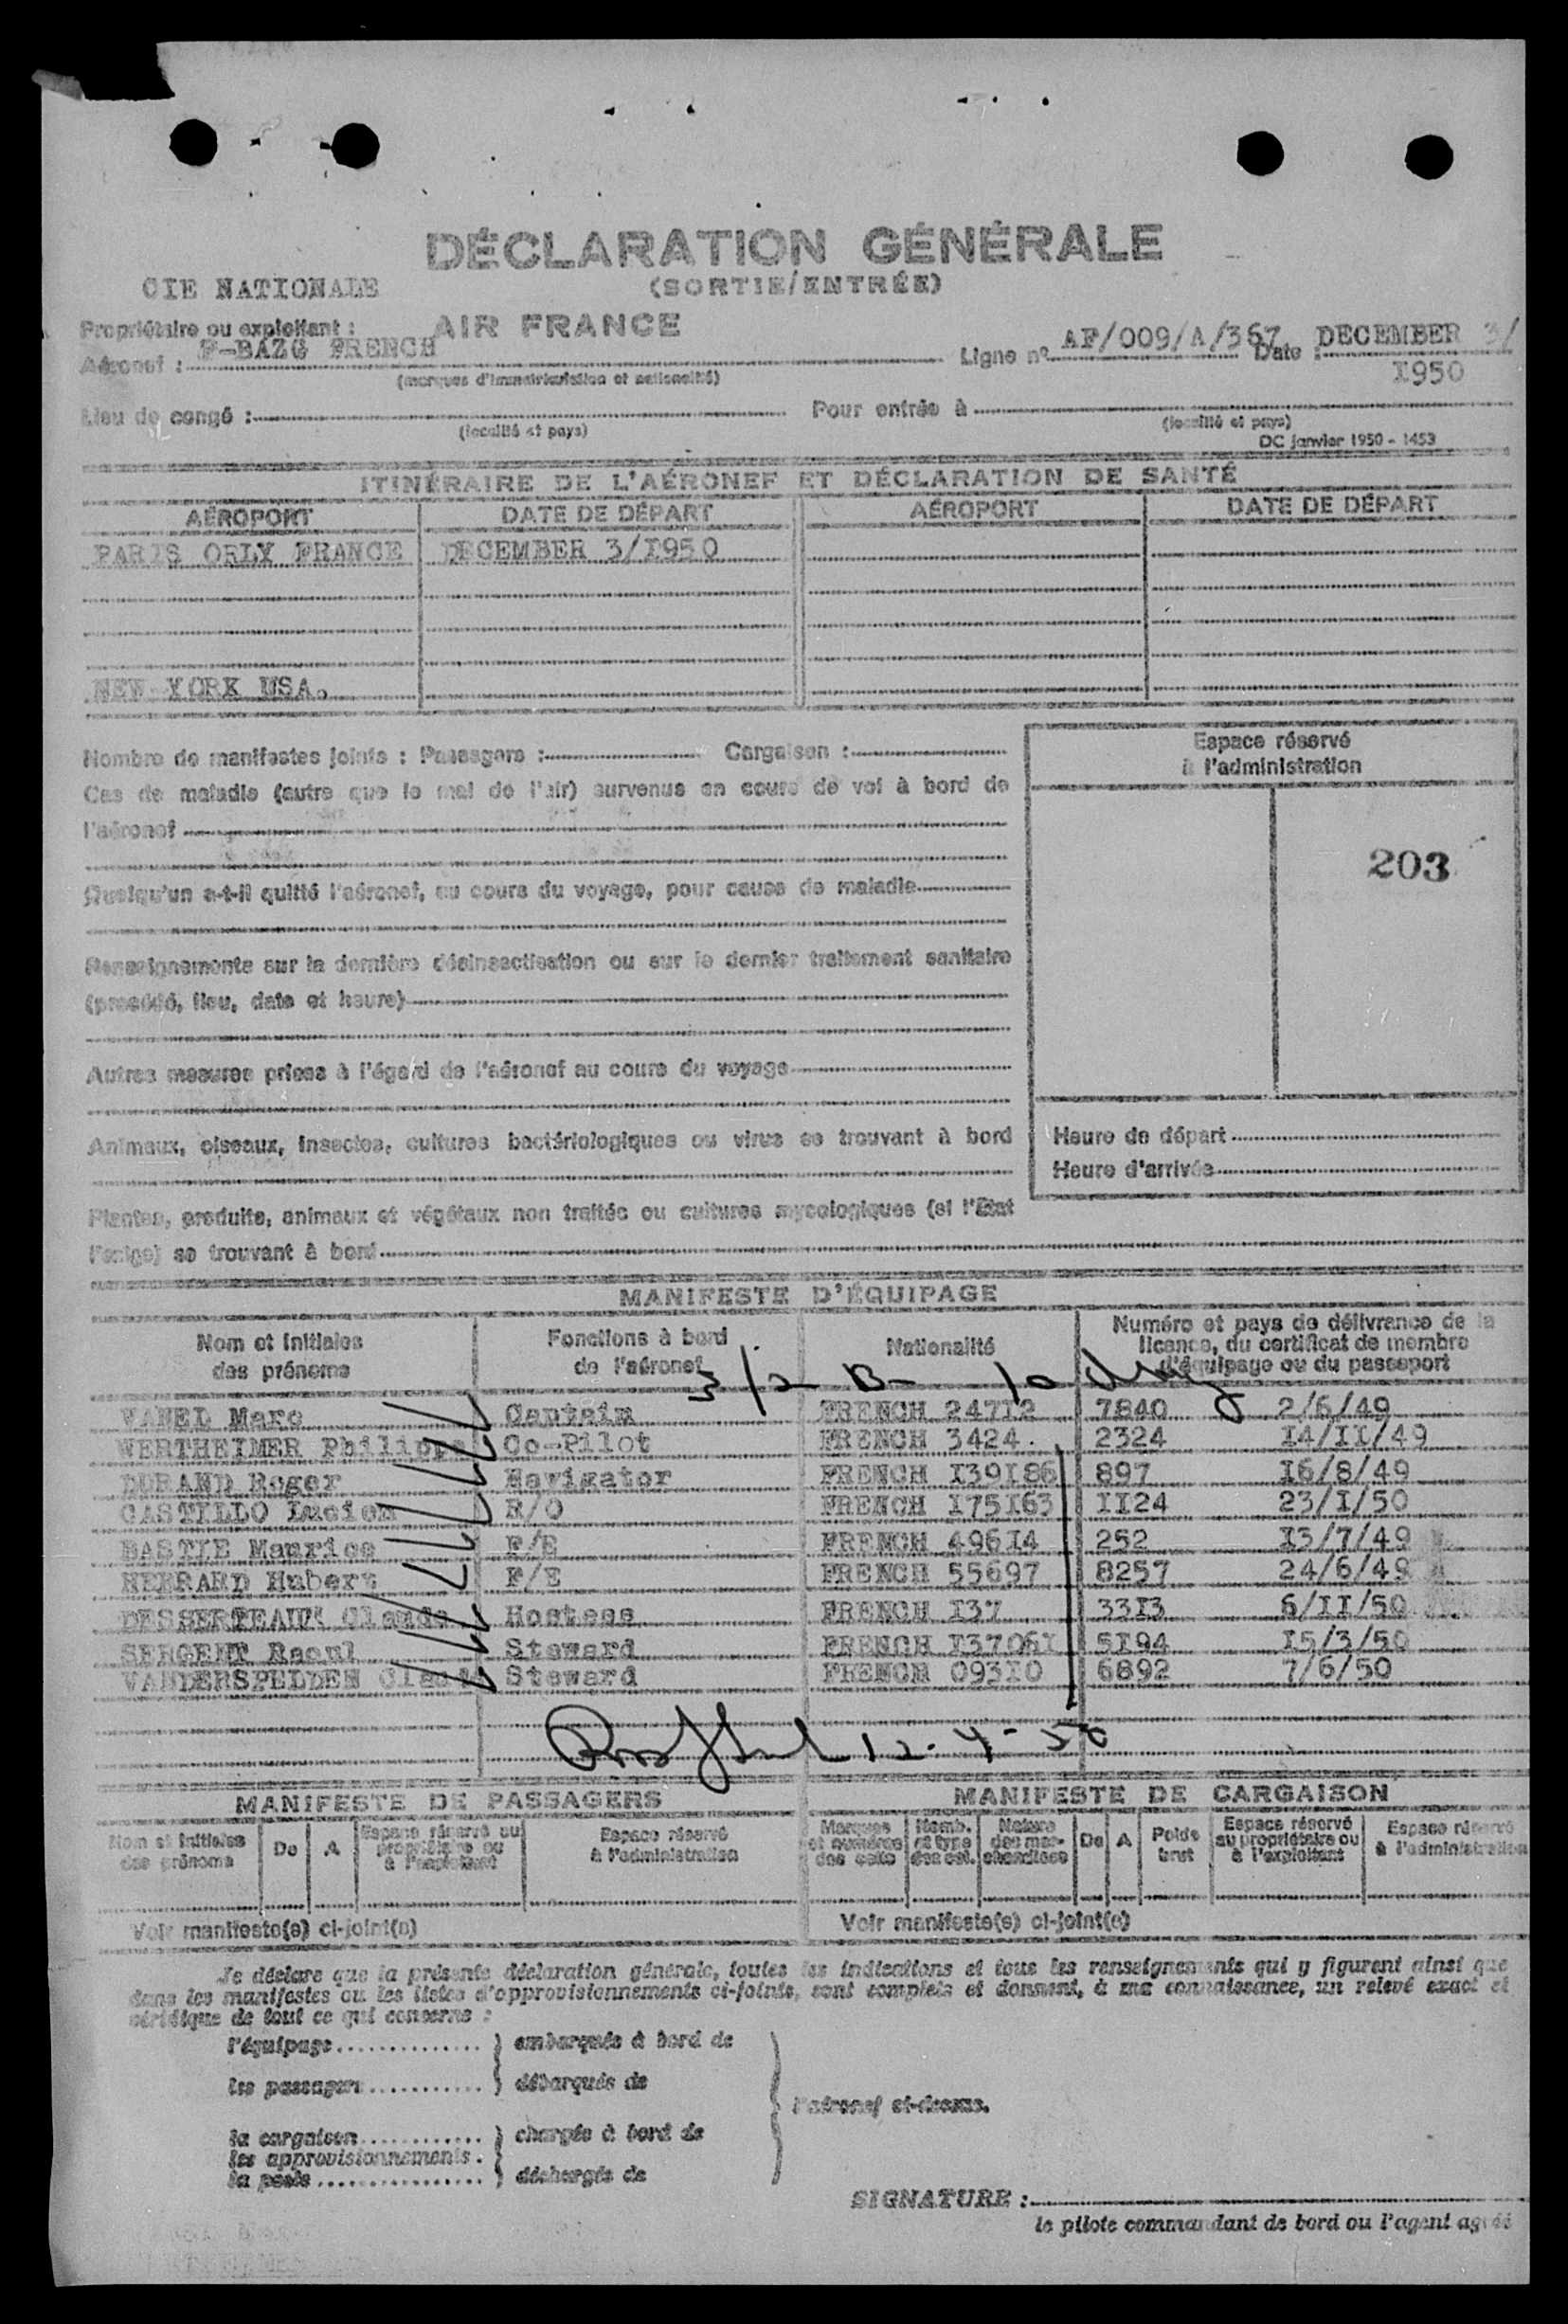 DÉCLARATION GÉNÉRALE
CIE NATIONALE (SORTIE/ENTRÉE)
Propriétaire ou exploitant : AIR FRANCE
Aéronef : F-BAZG FRENCH Ligne nº AF/009/A/367 Date : DECEMBER 3/
(marques d'immatriculation et nationalité) 1950
Lieu de congé : Pour entrée à
(localité et pays) (localité et pays)
DC janvier 1950 - 1453
ITINÉRAIRE DE L'AÉRONEF ET DÉCLARATION DE SANTÉ
AÉROPORT DATE DE DÉPART AÉROPORT DATE DE DÉPART
PARIS ORLY FRANCE DECEMBER 3/I950
NEW YORK USA.
Nombre de manifestes joints : Passagers : Cargaison :
Espace réservé
à l'administration
Cas de maladie (autre que le mal de l'air) survenus en cours de vol à bord de
l'aéronef
203
Quelqu'un a-t-il quitté l'aéronef, au cours du voyage, pour cause de maladie
Renseignements sur la dernière désinsectisation ou sur le dernier traitement sanitaire
(procédé, lieu, date et heure)
Autres mesures prises à l'égard de l'aéronef au cours du voyage
Animaux, oiseaux, insectes, cultures bactériologiques ou virus se trouvant à bord
Heure de départ
Heure d'arrivée
Plantes, produits, animaux et végétaux non traités ou cultures mycologiques (si l'Etat
l'exige) se trouvant à bord
MANIFESTE D'ÉQUIPAGE
Nom et initiales des prénoms
Fonctions à bord de l'aéronef
Nationalité
Numéro et pays de délivrance de la
licence, du certificat de membre
d'équipage ou du passeport
VANEL Marc Captain FRENCH 247I2 7840 2/6/49
WERTHEIMER Philippe Co-Pilot FRENCH 3424. 2324 I4/II/49
DURAND Roger Navigator FRENCH I39I86 897 I6/8/49
CASTILLO Lucien R/O FRENCH I75I63 II24 23/I/50
BASTIE Maurice F/E FRENCH 496I4 252 I3/7/49
HERRARD Hubert F/E FRENCH 55697 8257 24/6/49
DESSERTEAUX Claude Hostess FRENCH I37 33I3 6/II/50
SERGENT Raoul Steward FRENCH I3706I 5I94 I5/3/50
VANDERSPELDEN Steward FRENCH 093I0 6892 7/6/50
12-4-50
MANIFESTE DE PASSAGERS MANIFESTE DE CARGAISON
Nom et initiales des prénoms
De
A
Espace réservé au propriétaire ou à l'exploitant
Espace réservé à l'administration
Marques et numéros des colis
Nomb. et type des col.
Nature des mar- chandises
De
A
Poids brut
Espace réservé au propriétaire ou à l'exploitant
Espace réservé à l'administration
Voir manifeste(s) ci-joint(s) Voir manifeste(s) ci-joint(s)
Je déclare que la présente déclaration générale, toutes les indications et tous les renseignements qui y figurent ainsi que
dans les manifestes ou les listes d'approvisionnements ci-joints, sont complets et donnent, à ma connaissance, un relevé exact et
véridique de tout ce qui concerne :
l'équipage embarqués à bord de
les passagers débarqués de
l'aéronef ci-dessus.
la cargaison chargés à bord de
les approvisionnements
la poste déchargés de
SIGNATURE :
le pilote commandant de bord ou l'agent agréé